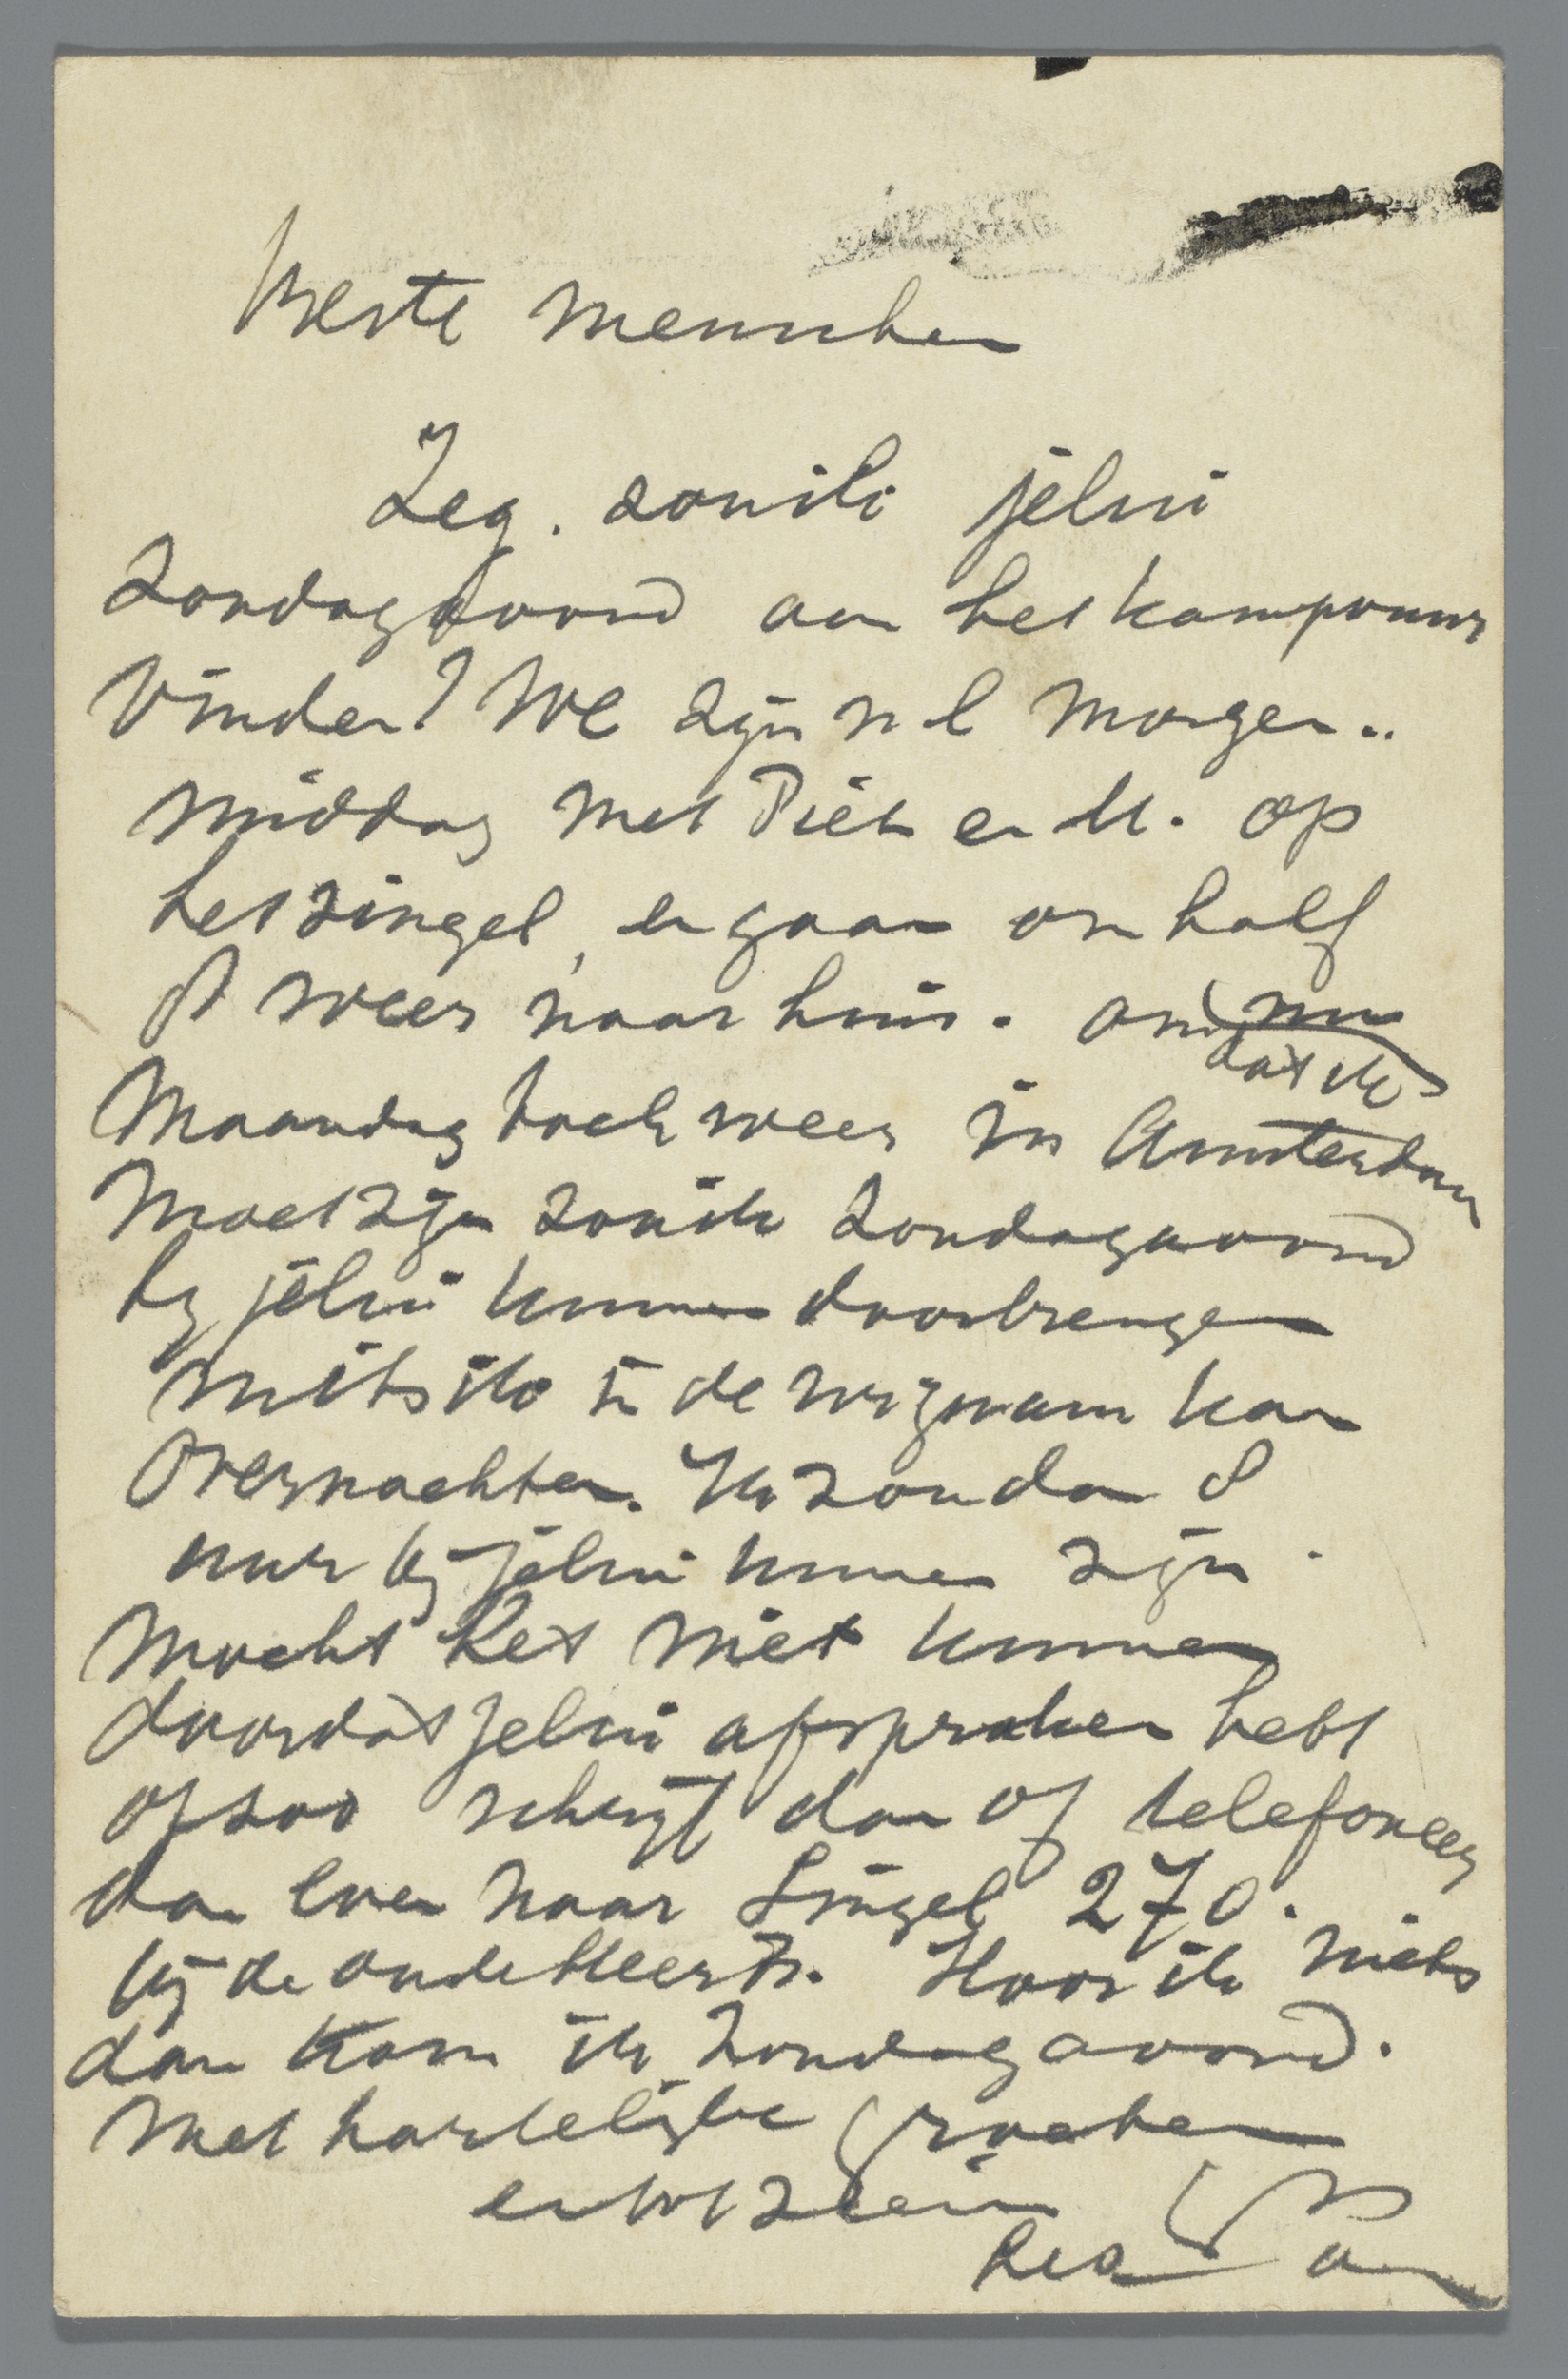 Beste menschen
Zeg. zou ik jelui
Zondagavond aan het kampvuur
vinden? We zijn n l morgen..
middag met Piet en M. op
het singel, en gaan om half
8 weer naar huis. Omdat ik
Maandag toch weer in Amsterdam
moet zijn zou ik Zondagavond
bij jelui kunnen doorbrengen
mits ik in de wigwam kan
overnachten. Ik zou dan 8
uur bij jelui kunnen zijn.
Mocht het niet kunnen
doordat jelui afspraken hebt
of zoo schrijf dan of telefoneer
dan even naar Singel 270.
bij de oude Heertjs. Hoor ik niets
dan kom ik Zondagavond.
Met hartelijke groeten
en tot ziens